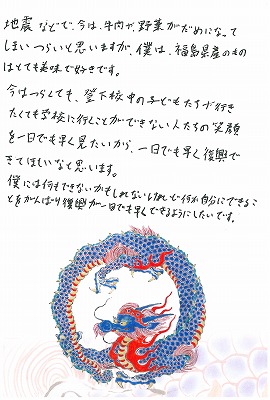 地震などで、今は、牛肉や、野菜がだめになって
しまいつらいと思いますが、僕は、福島県産のもの
はとても美味で好きです。
今はつらくても、登下校中の子どもたちが行き
たくても学校に行くことができない人たちの笑顔
を一日でも早く見たいから、一日でも早く復興で
きてほしいなと思います。
僕には何もできないかもしれないけれど何か自分にできるこ
とをがんばり復興が一日でも早くできるようにしたいです。